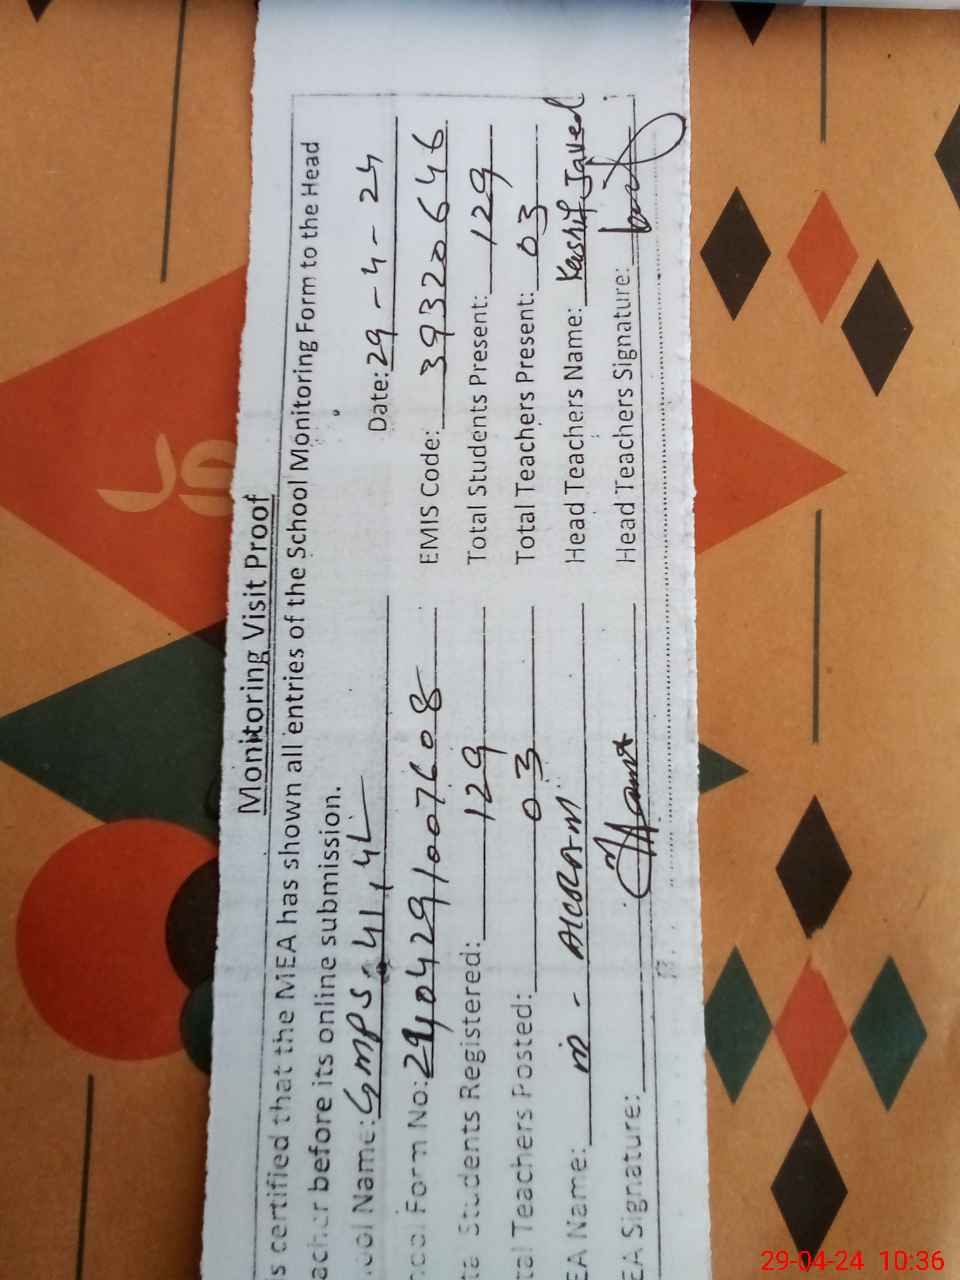 Monitoring Visit Proof
certified that the MEA has shown all entries of the School Monitoring Form to the Head
before its online submission.
Name: GMPS 411, 4L Date: 29-4-24
Form No: 2404291007608 EMIS Code: 39320646
Students Registered: 129 Total Students Present: 129
Teachers Posted: 03 Total Teachers Present: 03
Name: M - AKRAM Head Teachers Name: Kashif Javed
Signature: Head Teachers Signature:
29-04-24 10:36